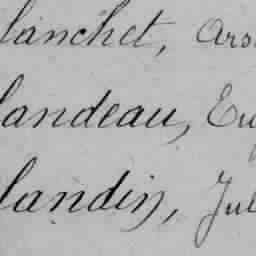 lanchet, Ars
landeau, Eug
landin, Jul